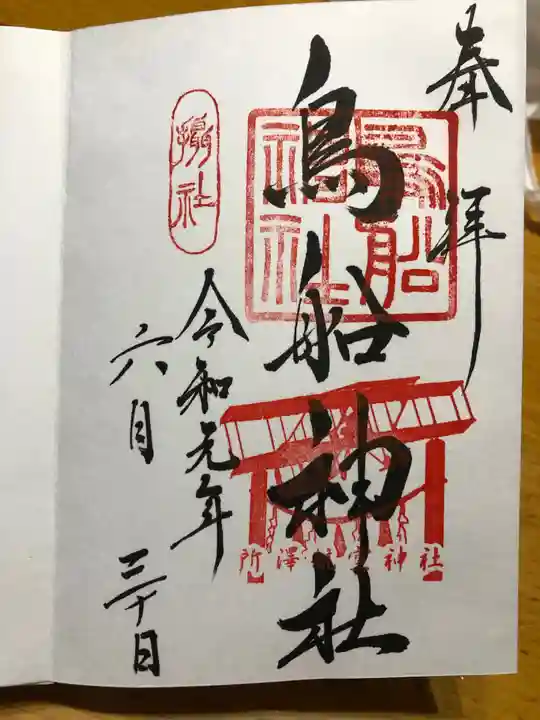 奉拝
鳥船神社
鳥船
神社
所澤航空神社
摂社
令和元年
六月三十日